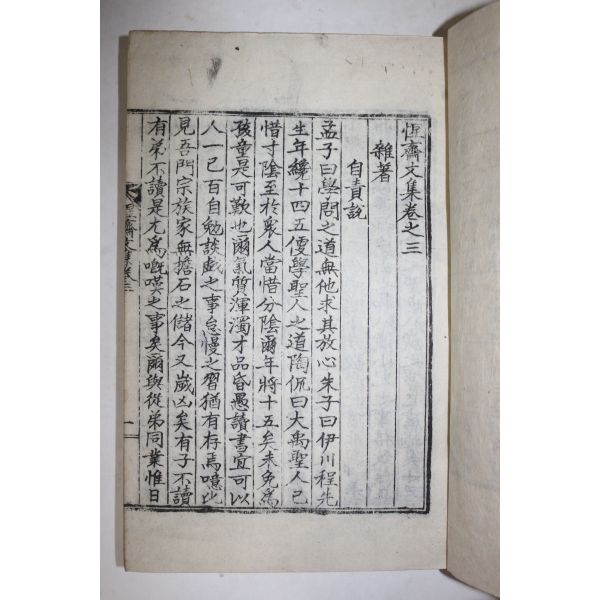 恆齋文集卷之三
雜著
自責說
孟子曰學問之道無他求其放心朱子曰伊川程先
生年纔十四五便學聖人之道陶侃曰大禹聖人已
惜寸陰至於衆人當惜分陰爾年將十五矣未免爲
孩童是可歎也爾氣質渾濁才品昏愚讀書宜可以
人一己百自勉談戱之事怠慢之習猶有存焉噫此
見吾門宗族家無擔石之儲今又歲凶矣有子不讀
有弟不讀是尤爲嘅嘆之事矣爾與從弟同業惟日
齋文集卷三
一